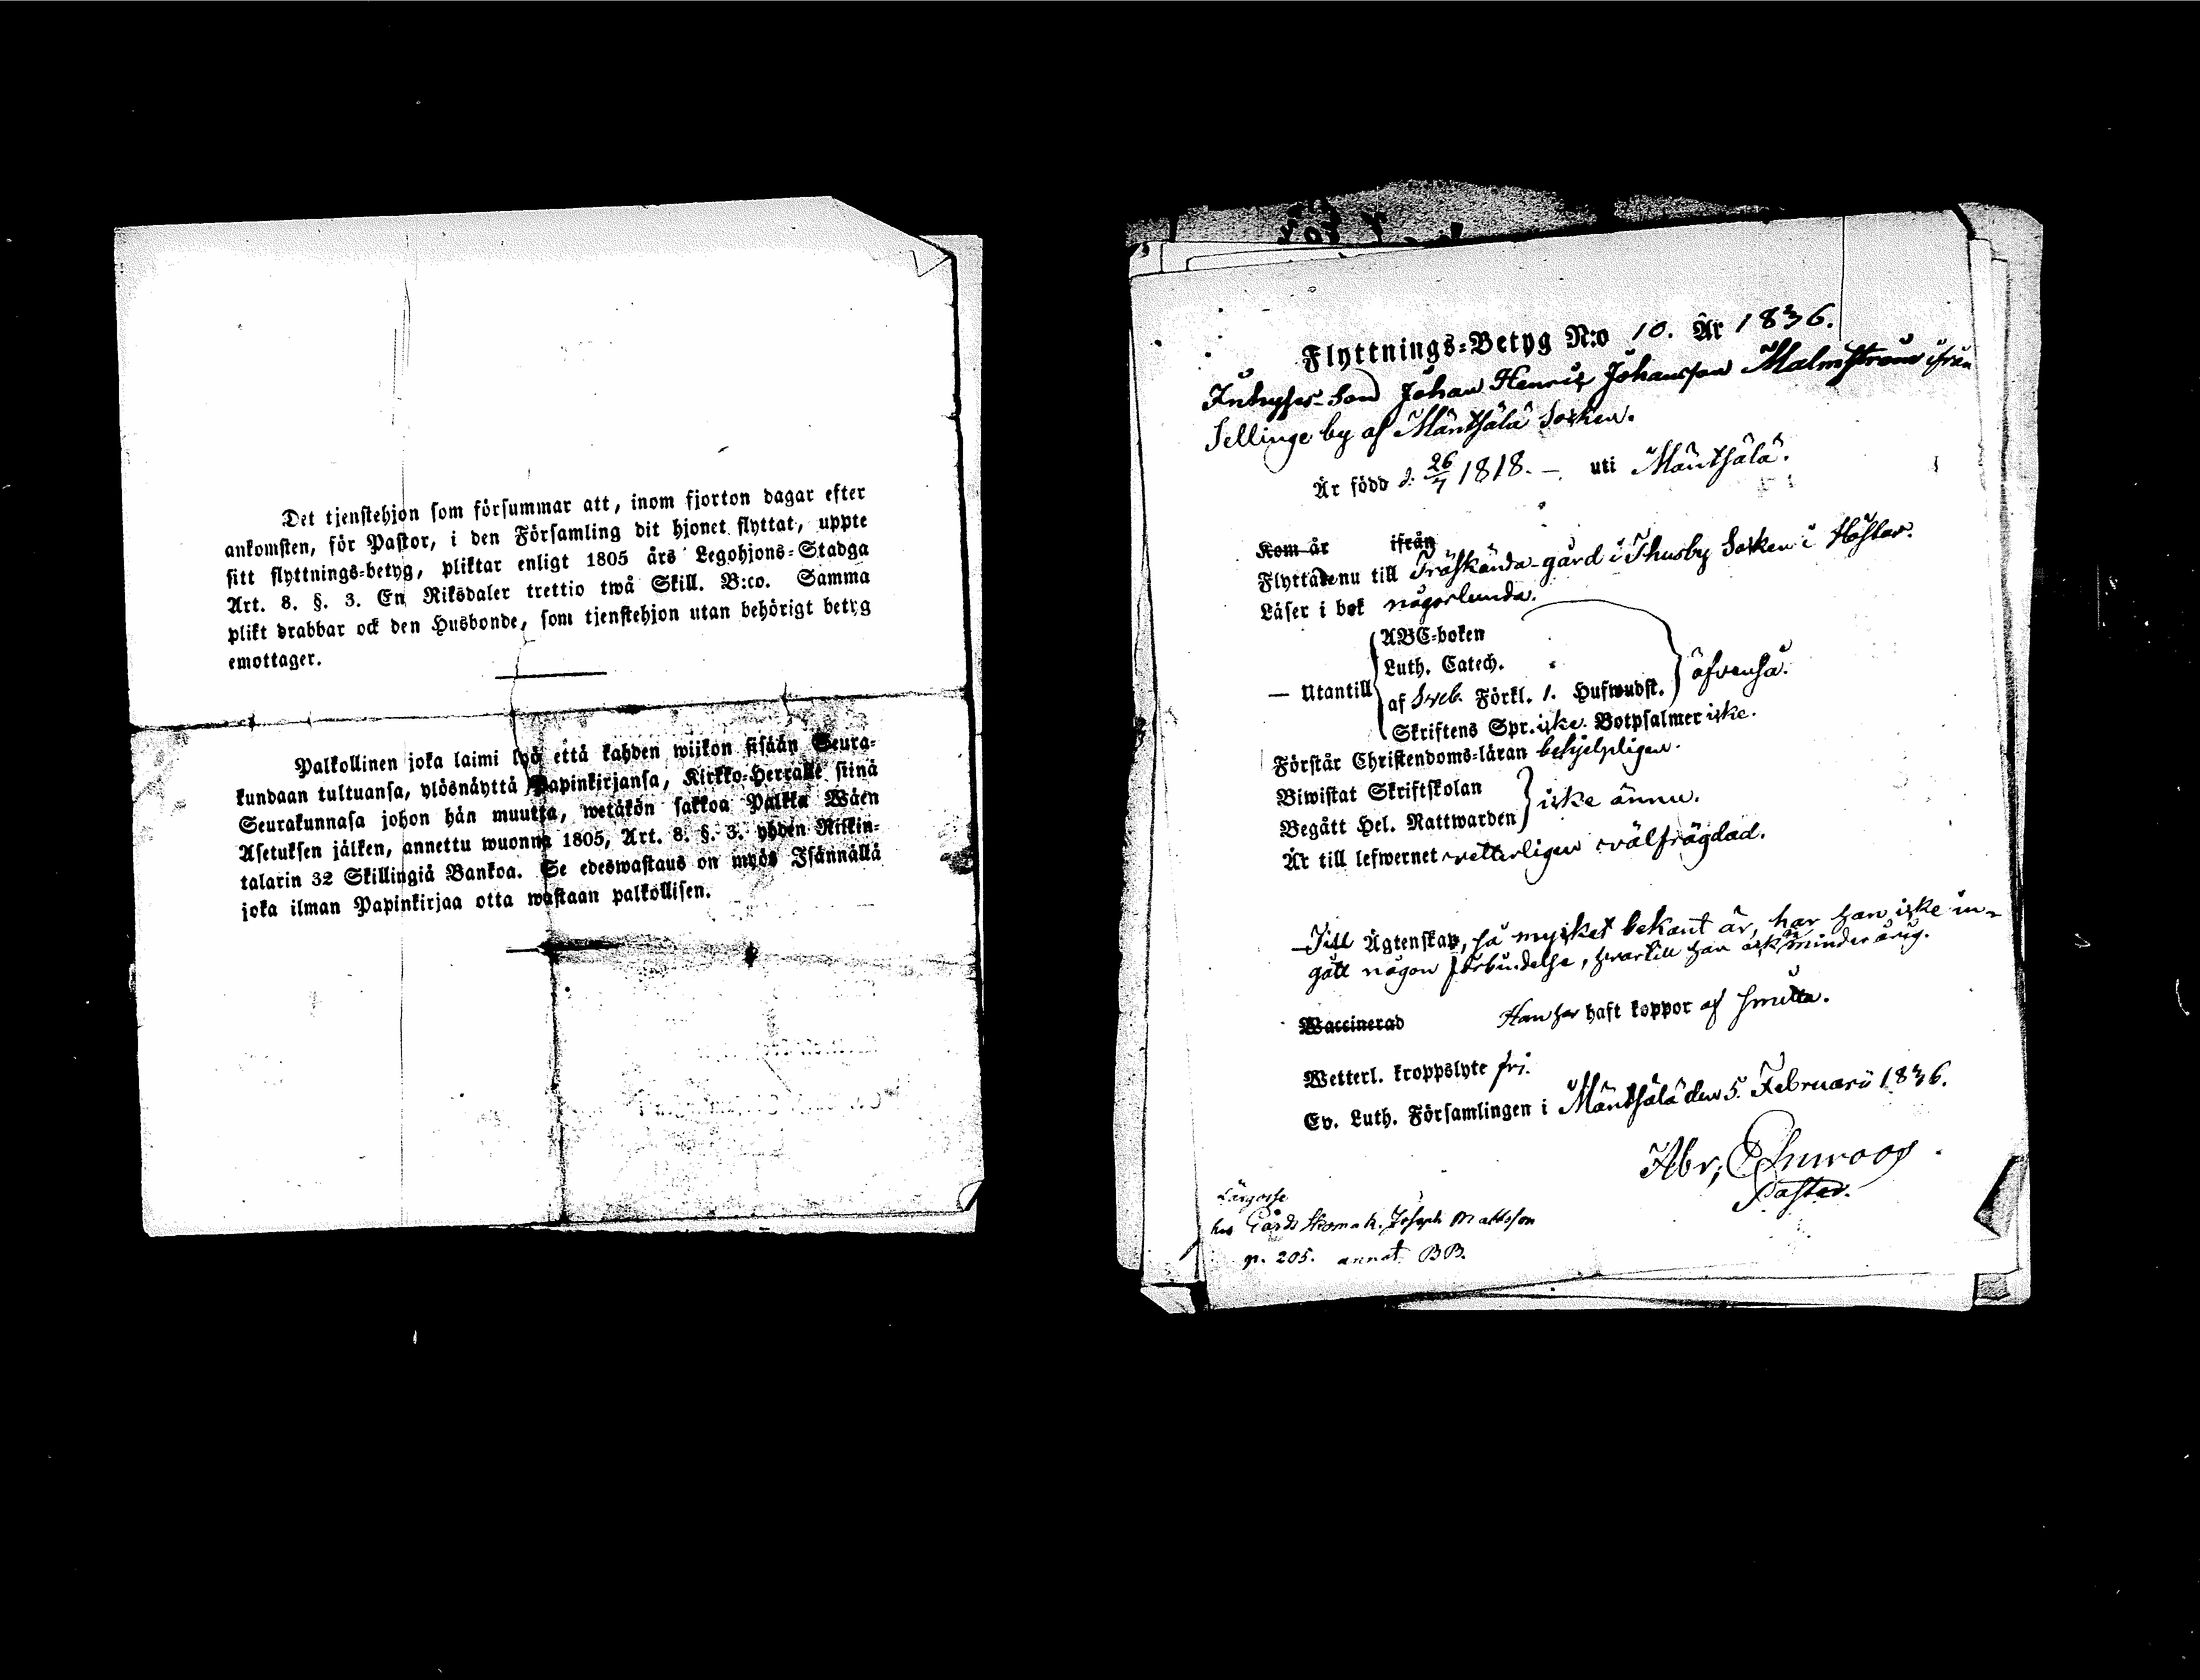 Det tjenstehjon som försummar att, inom fjorton dagar efter
ankomsten, för Pastor, i den Församling dit hjonet flyttat, uppte
sitt flyttnings-betyg, pliktar enligt 1805 års Legohjons-Stadga
Art. 8. §. 3. En Riksdaler trettio twå Skill. B:co. Samma
plikt drabbar ock den Husbonde, som tjenstehjon utan behörigt betyg
emottager.
Palkollinen joka laimi lyö että kahden wiikon sisään Seura-
kundaan tultuansa, ylösnäyttä Papinkirjansa, Kirkko-Herralle siinä
Seurakunnasa johon hän muutta, wetäkön sakkoa Palkka Wäen
Asetuksen jälken, annettu wuonna 1805, Art. 8. §. 3. yhden Riikin-
talarin 32 Skillingiä Bankoa. Se edeswastaus on myös Isännällä
joka ilman Papinkirjaa otta wastaan palkollisen.
Flyttnings-Betyg N:o 10. År 1836.
Inhyses-Son Johan Henric Johansson Malmström ifrån
Sellinge by af Mäntsälä Socken.
Är född d. 26/7 1818. — uti Mäntsälä.
Kom år ifrån
Flyttade nu till Träskända gård i Thusby Socken i Höstas.
Läser i bok någorlunda.
ABC-boken
Luth. Catech.
— Utantill af Sveb. Förkl. 1. Hufwudst. äfvenså.
Skriftens Spr. icke. Botpsalmer icke.
Förstår Christendoms-läran behjelpligen.
Biwistat Skriftskolan
Begått Hel. Nattwarden icke ännu.
Är till lefwernet vetterligen välfrägdad.
Till Ägtenskap, så mycket bekant är, har han icke in-
gått någon förbindelse, hvartill han ock är minderårig.
Waccinerad Han har haft koppor af smitta.
Wetterl. kroppslyte fri.
Ev. Luth. Församlingen i Mäntsälä den 5. Februarii 1836.
Abr;
Pastor.
Lärgosse
hos Gårds Skomak. Joseph Mattsson
p. 205. annat BB.